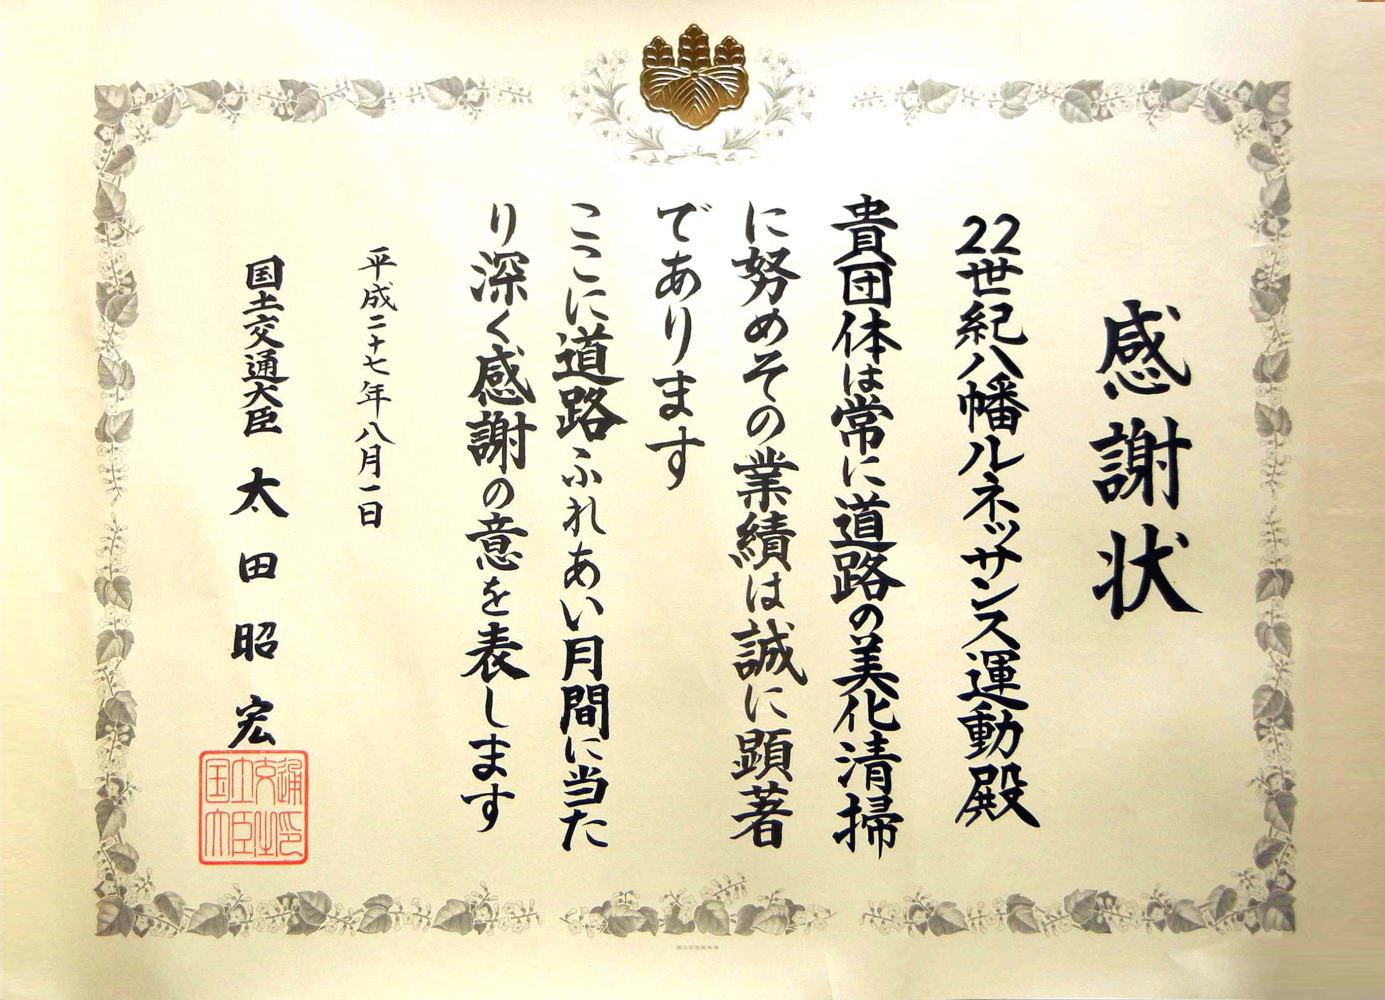 感謝状
22世紀八幡ルネッサンス運動殿
貴団体は常に道路の美化清掃
に努めその業績は誠に顕著
であります
ここに道路ふれあい月間に当た
り深く感謝の意を表します
平成二十七年八月一日
国土交通大臣 太田昭宏
国土交通
大臣之印